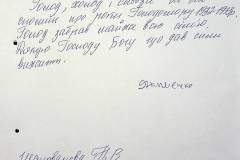 Голод, холод і
спогади про роки Голодомору 1932-1933р.
Голод забрав майже всю сім'ю.
Дякую Господу Богу що дав сили
вижити.
Т. В.